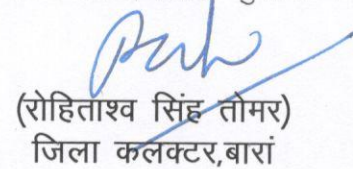 (रोहिताश्व सिंह तोमर)
जिला कलक्टर,बारां